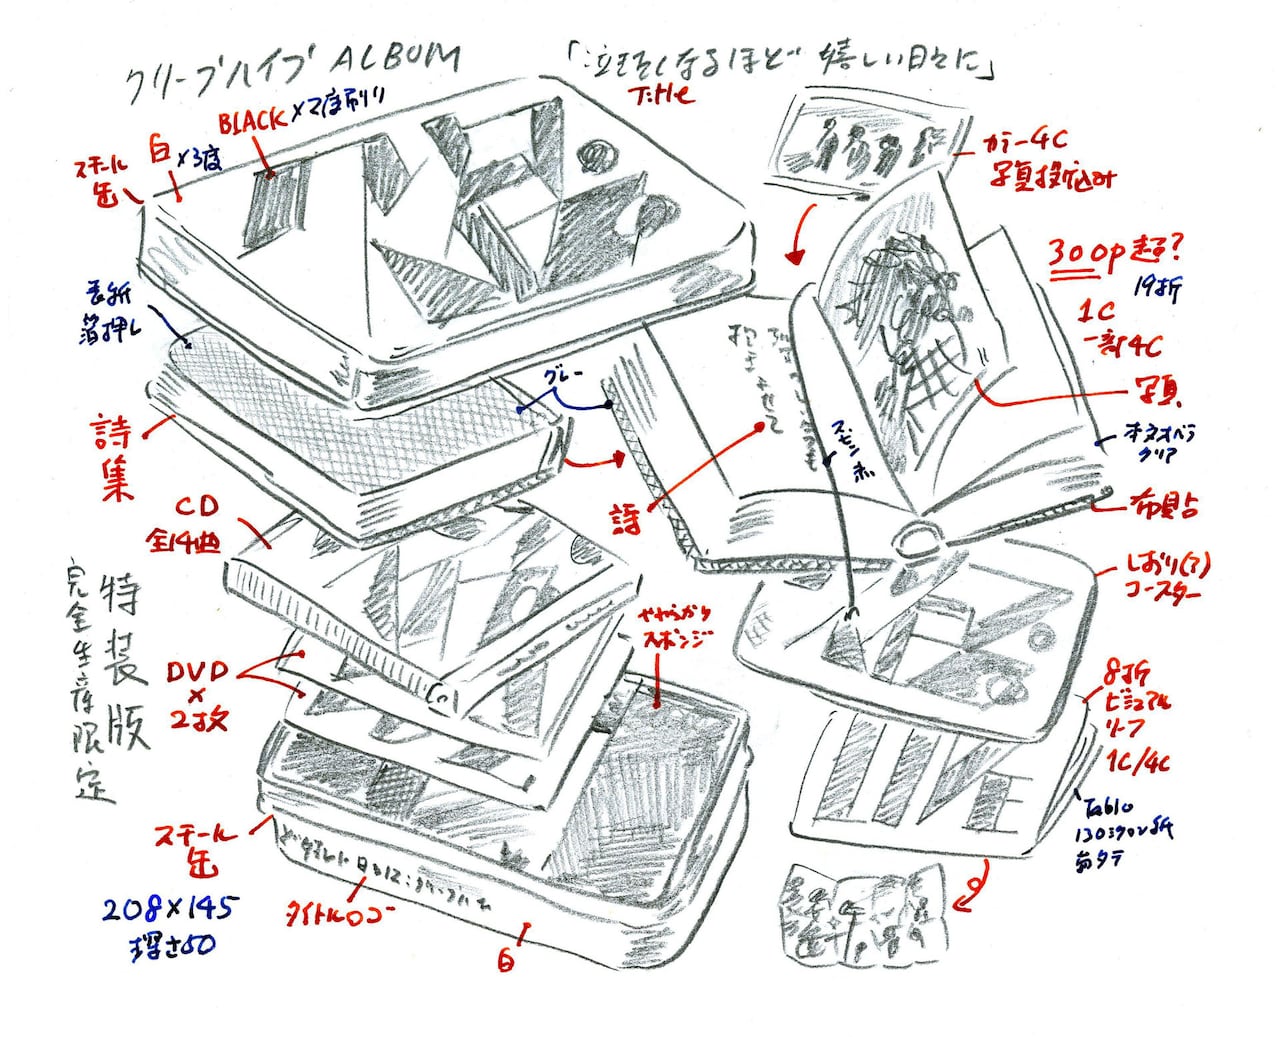 クリープハイプ ALBUM
「泣きたくなるほど嬉しい日々に」
Title
BLACK×2度刷り
白×3度
スチール
缶
カラー4C
写真投げ込み
300p超?
19折
1C
一部4C
写真
表折
箔押し
グレー
オタオベラ
クリア
布貼
詩
集
詩
スピン赤
抱きよせて
CD
全14曲
しおり(?)
コースター
やわらかり
スポンジ
DVD
×
2枚
特装版
完全生産限定
8折
ビジュアル
リーフ
1C/4C
Tablo
130ミクロン紙
スチール
缶
タイトルロゴ
白
208×145
深さ50